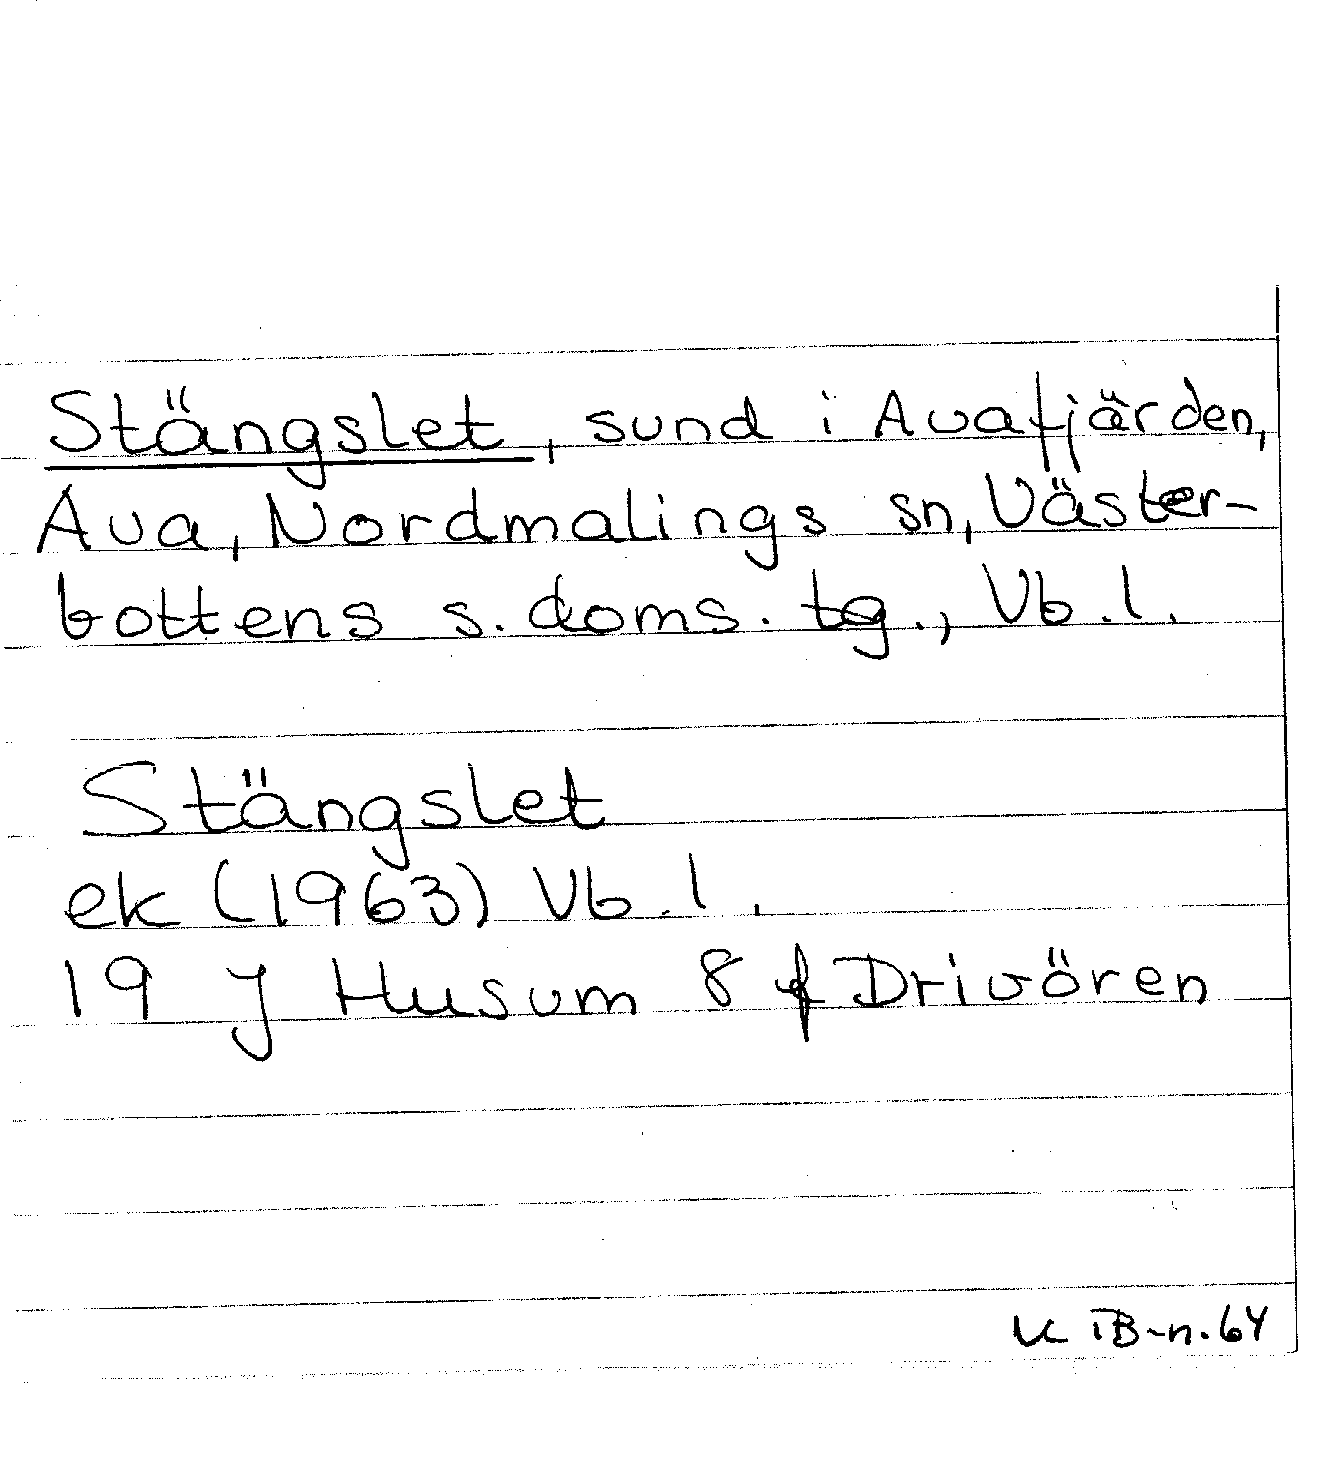 Stängslet, sund i Avafjärden,
Ava, Nordmalings sn, Väster-
bottens s. doms. tg., Vb. l.
Stängslet
ek (1963) Vb. l.
19 J Husum 8 f Drivören
K IB-n. 64